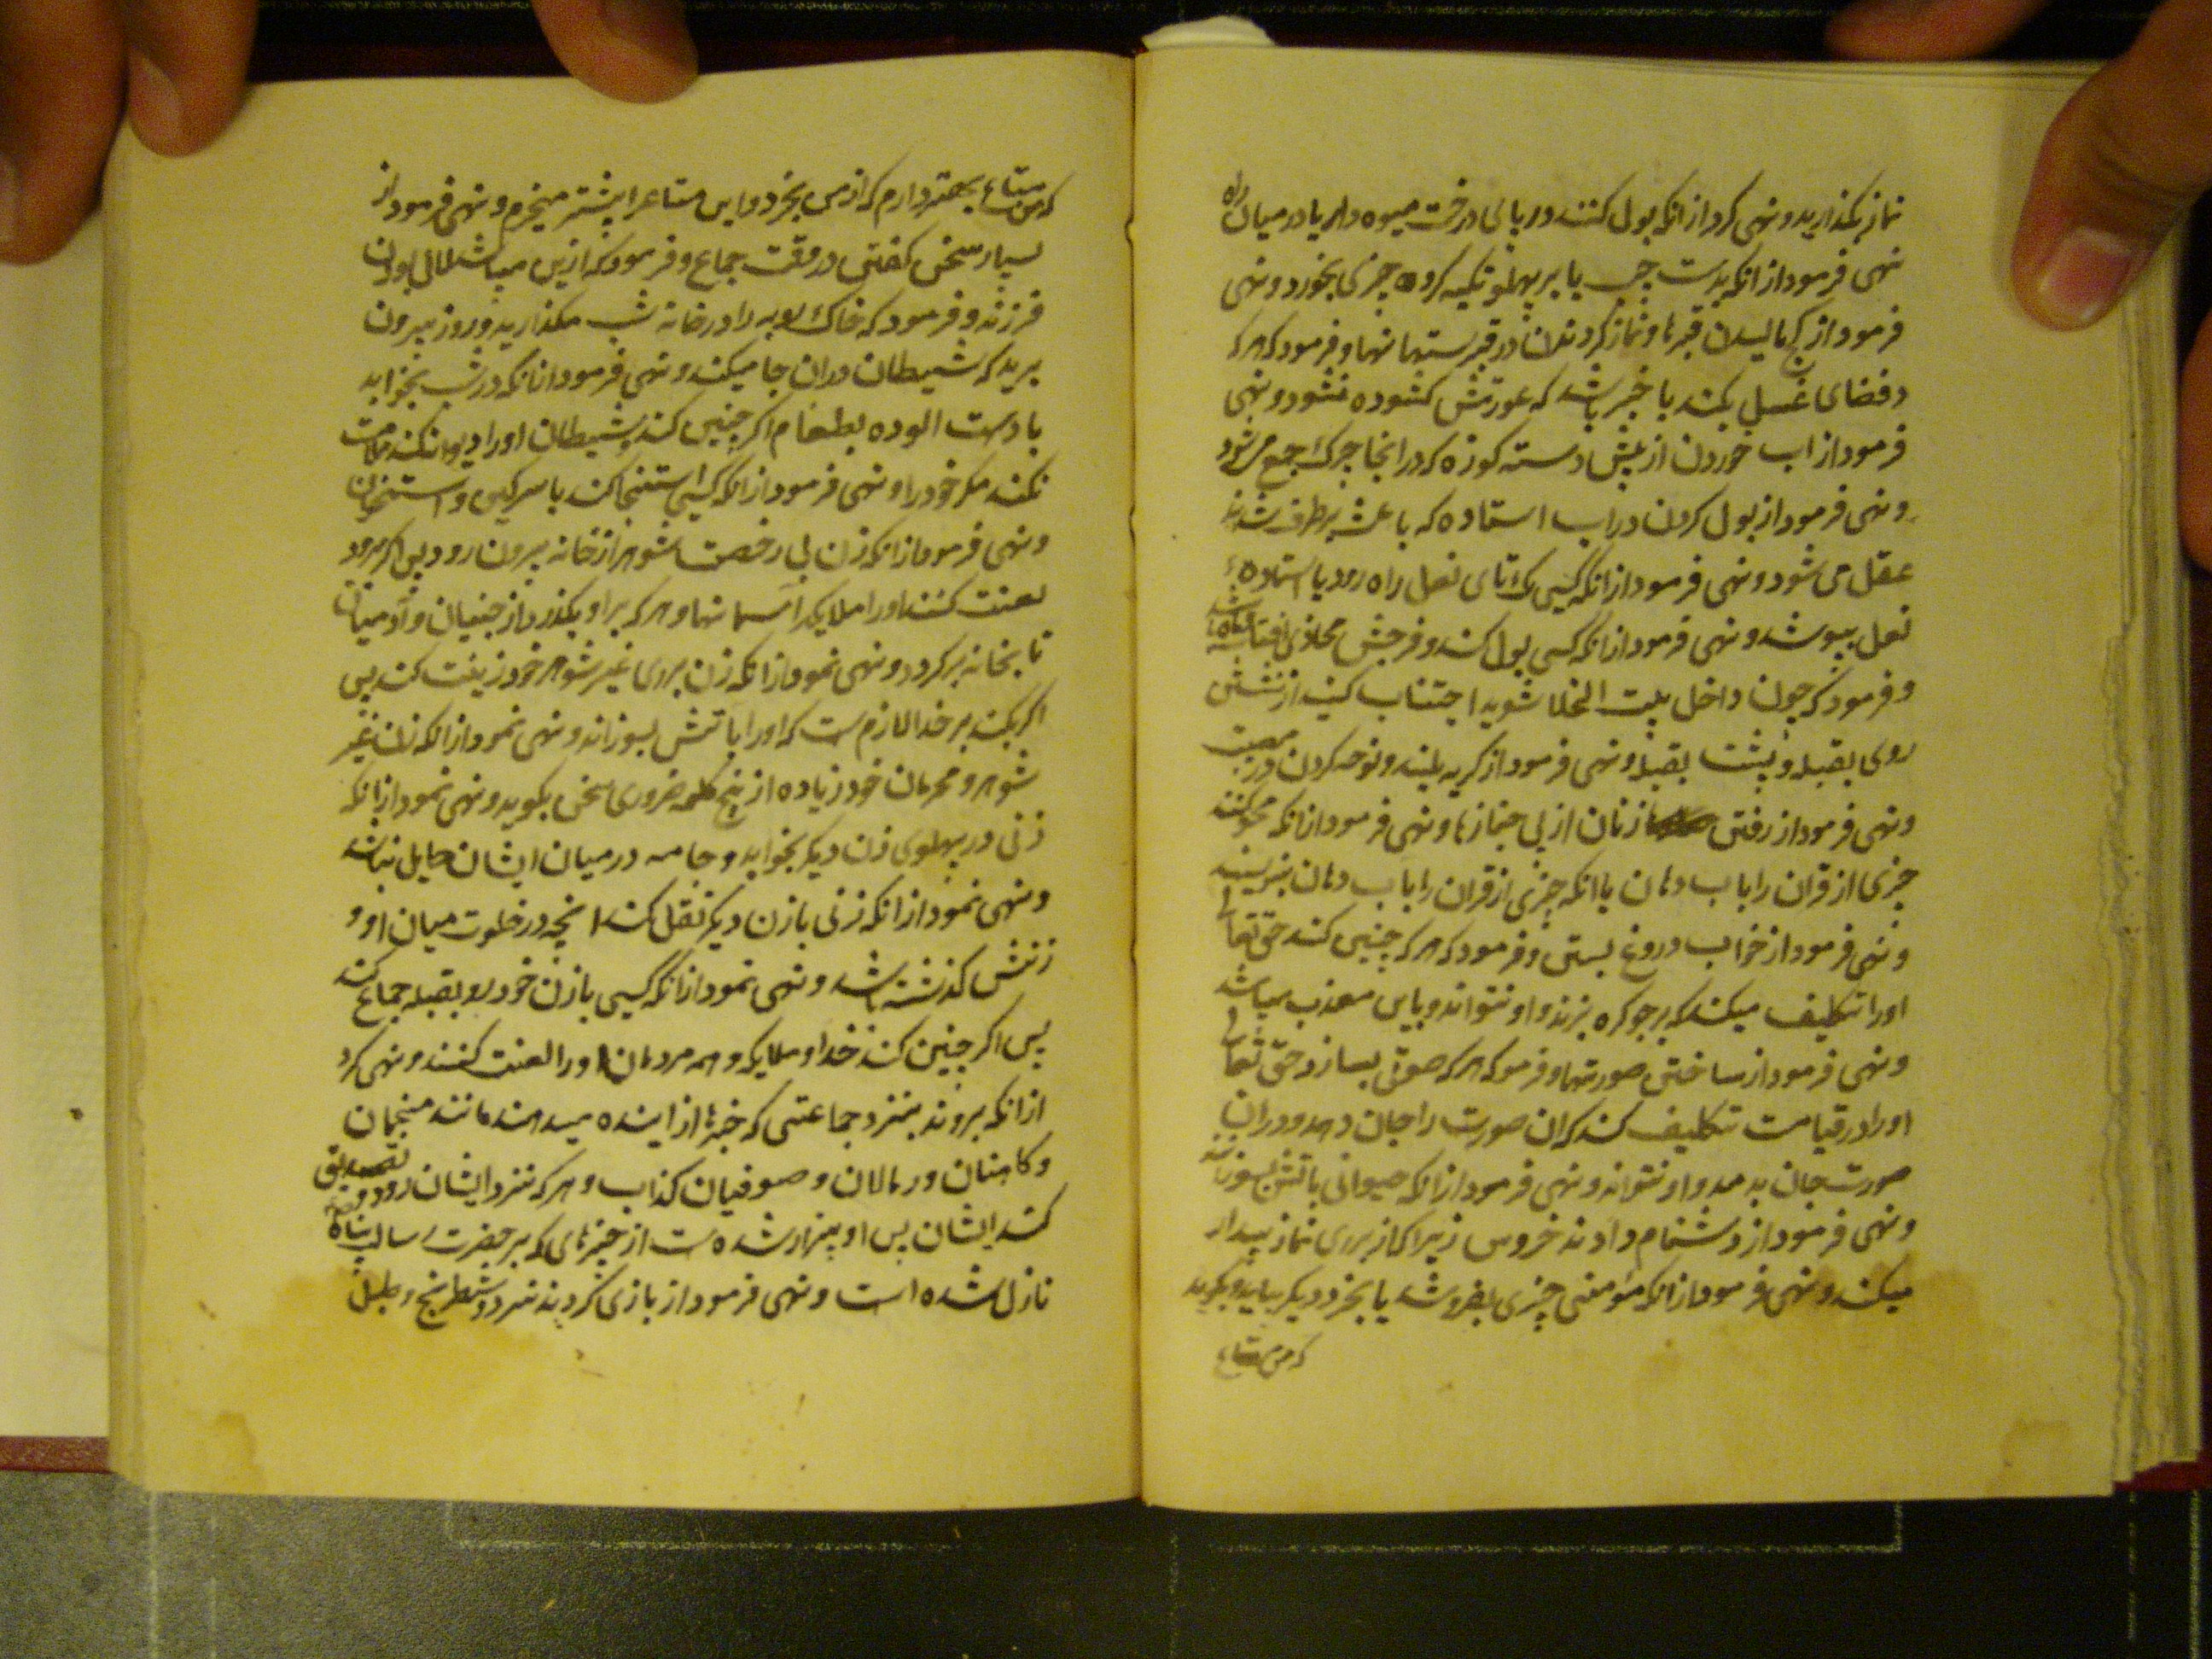 نماز بگذارید و نهی کرد از انکه بول کنند در پای درخت میوه دار یا در میان راه
نهی فرمود از انکه بدست چپ یا بر پهلو تکیه کرده چیزی بخورد و نهی
فرمود از کچ مالیدن قبرها و نماز کردن در قبرستانها و فرمود که هر که
در فضای غسل بکند با خبر باشد که عورتش کشوده نشود و نهی
فرمود از اب خوردن از پیش دسته کوزه که در انجا چرک جمع می شود
و نهی فرمود از بول کردن در اب استاده که باعث برطرف شدن
عقل می شود و نهی فرمود از انکه کسی یکتای نعل راه رود یا استاده
نعل بپوشد و نهی فرمود از انکه کسی بول کند و فرجش محاذی افتاب
و فرمود که چون داخل بیت الخلا شوید اجتناب کنید از نشستن
روی بقبله و پشت بقبله و نهی فرمود از کریه بلند و نوحه کردن در مصیبت
و نهی فرمود از رفتن زنان از پی جنازها و نهی فرمود از انکه محو کنند
چیزی از قران را باب دهان یا انکه چیزی از قران را باب دهان بنویسند
و نهی فرمود از خواب دروغ بستن و فرمود که هر که چنین کند حق تعالی
او را تکلیف میکند که بر جو کره بزند و او نتواند و باین معذب میباشد
و نهی فرمود از ساختن صورتها و فرمود که هر که صورتی بسازد حق تعالی
او را در قیامت تکلیف کند که ان صورت را جان دهد و در ان
صورت جان بدمد و او نتواند و نهی فرمود از انکه حیوانی باتش بسوزانند
و نهی فرمود از دشنام دادن خروس زیرا که از برای نماز بیدار
میکند و نهی فرمود از انکه مؤمنی چیزی بفروشد یا بخرد و دیکر بیاید و بکوید
که من متاع
که من متاع بهتر دارم که از من بخرد و این متاع را بیشتر میخرم و نهی فرمود از
بسیار سخن کفتن در وقت جماع و فرمود که ازین میباشد لال بودن
فرزند و فرمود که خاک روبه را در خانه شب مکذارید و روز بیرون
برید که شیطان در ان جا میکند و نهی فرمود از انکه در شب بخوابد
با دست الوده بطعام اکر چنین کند و شیطان او را دیوانه کند ملامت
نکند مکر خود را و نهی فرمود از انکه کسی استنجا کند با سرکین و استخوان
و نهی فرمود از انکه زن بی رخصت شوهر از خانه بیرون رود پس اکر برود
لعنت کنند او را ملایکه اسمانها و هر که بر او بکذرد از جنیان و آدمیان
تا بخانه برکردد و نهی نمود از انکه زن برای غیر شوهر خود زینت کند پس
اکر بکند بر خدا لازم است که او را باتش بسوزاند و نهی نمود از انکه زن غیر
شوهر و محرمان خود زیاده از پنج کلمه ضروری سخن بکوید و نهی نمود از انکه
زنی در پهلوی زن دیکر بخوابد و جامه در میان ایشان حایل نباشد
و نهی نمود از انکه زنی با زن دیکر نقل کند انچه در خلوت میان او و
زنش کذشته باشد و نهی نمود از انکه کسی با زن خود رو بقبله جماع کند
پس اکر چنین کند خدا و ملایکه و همه مردمان او را لعنت کنند و نهی کرد
از انکه بروند بنزد جماعتی که خبرها از اینده میدهند مانند منجمان
و کاهنان و رمالان و صوفیان کذاب و هر که بنزد ایشان رود و تصدیق
کند ایشان پس او بیزار شده است از چیزهای که بر حضرت رسالت پناه
نازل شده است و نهی فرمود از بازی کردن نرد و شطرنج و طبل